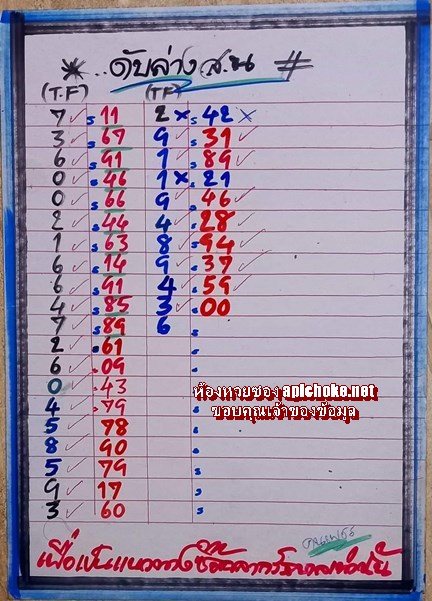 * ..ดับล่าง ส.น #
(T.F) (TF)
7 ✓ s 11 2 x s 42 x
3 ✓ s 67 9 ✓ s 31 ✓
6 ✓ s 91 1 ✓ s 89 ✓
0 ✓ s 46 1 x s 21
0 ✓ s 66 9 ✓ s 46 ✓
2 ✓ s 44 4 ✓ s 28 ✓
1 ✓ s 63 8 ✓ s 94 ✓
6 ✓ s 14 9 ✓ s 37 ✓
6 ✓ s 91 4 ✓ s 59 ✓
4 ✓ s 85 3 ✓ s 00
7 ✓ s 89 6 s
2 ✓ . 61
6 ✓ . 09
0 ✓ . 43
ห้องหวยซอง apichoke.net
4 ✓ . 79
ขอบคุณเจ้าของข้อมูล
5 ✓ 78
8 ✓ 90
5 ✓ 79
9 ✓ 17
3 ✓ 60
เพื่อเป็นแนวทางซื้อสลากรัฐบาลเท่านั้น